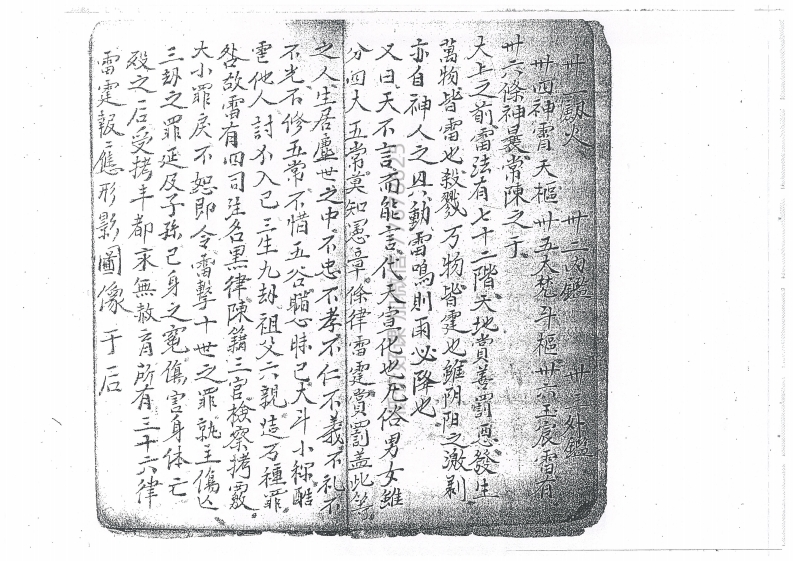 卅一馘火 卅二內鑑 卅三外鑑
卅四神霄天樞 卅五大梵斗樞 卅六玉宸雷有
卅六條神晨常陳之于
大上之前雷法有七十二階天地賞善罰惡發生
萬物皆雷也殺戮万物皆霆也雖阴阳之激剥
亦自神人之具動雷鳴則雨必降也
又曰天不言而能言代天宣化也尤俗男女雖
分四大五常莫知憲章條律雷霆賞罰盖此等
之人生居塵世之中不忠不孝不仁不義不礼不
不光不修五常不惜五谷瞒心昧己大斗小秤酷
害他人討及入己三生九劫祖父六親造万種罪
咎故雷有四司姓名黑律陳籍三官檢察拷覈
大小罪戾不恕即令雷擊十世之罪孰主傷亡
三劫之罪延及子孫己身之冤傷害身体亡
殁之后受拷丰都永無赦宥所有三十六律
雷霆報應形影圖像于后